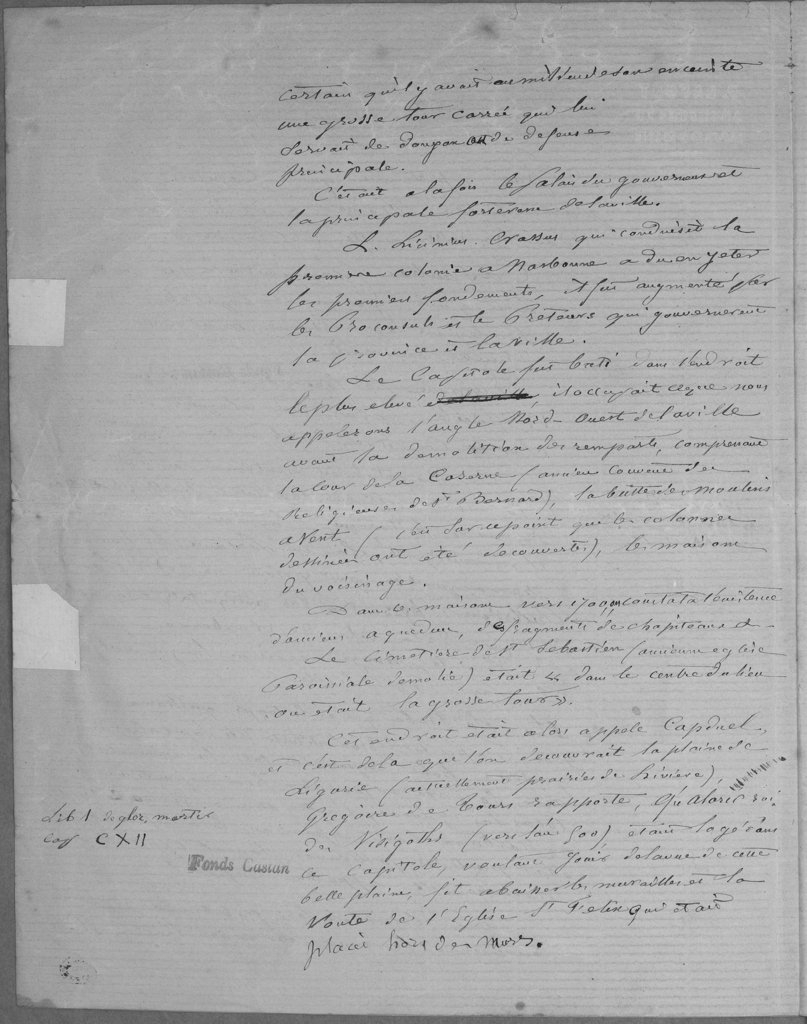 certain qu'il y avait au milieu de son enceinte
une grosse tour carrée qui lui
servait de donjon et de defense
principale.
C'était a la fois le palais du gouverneur et
la principale forteresse de la ville.
L. Licinius. Crassus qui conduisit la
premiere colonie a Narbonne a du en jeter
les premiers fondements, il fut augmenté par
les Proconsuls et le Préteurs qui gouvernerent
la province et la ville.
Le Capitole fut bati dans l'endroit
le plus elevé, il occupait ce que nous
appelerons l'angle Nord-Ouest de la ville
avant la demolition des remparts, comprenant
la cour de la Caserne (ancien couvent des
Religieuses de St Bernard), la butte des Moulins
a Vent (c'est sur ce point que les colonnes
dessinées ont été decouvertes), les maisons
du voisinage.
Dans les maisons vers 1700 on constata l'existence
d'anciens aqueducs, des fragments de chapiteaux &
Le Cimetiere de St Sebastien (ancienne eglise
Paroissiale demolie) était dans le centre du lieu
ou était la grosse tour ».
Cet endroit etait alors appele Capduel,
et c'est de la que l'on decouvrait la plaine de
Ligurie (actuellement prairies de Liviere),
Gregoire de Tours rapporte, qu'Alaric roi
des Visigoths (vers l'an 500) etant logé dans
ce capitole, voulant jouir de la vue de cette
belle plaine, fit abaisser les murailles et la
Voute de l'Eglise St Felix qui etait
placée hors des Murs.
Lib 1 de glor. martir
cap CXII
Fonds Castan